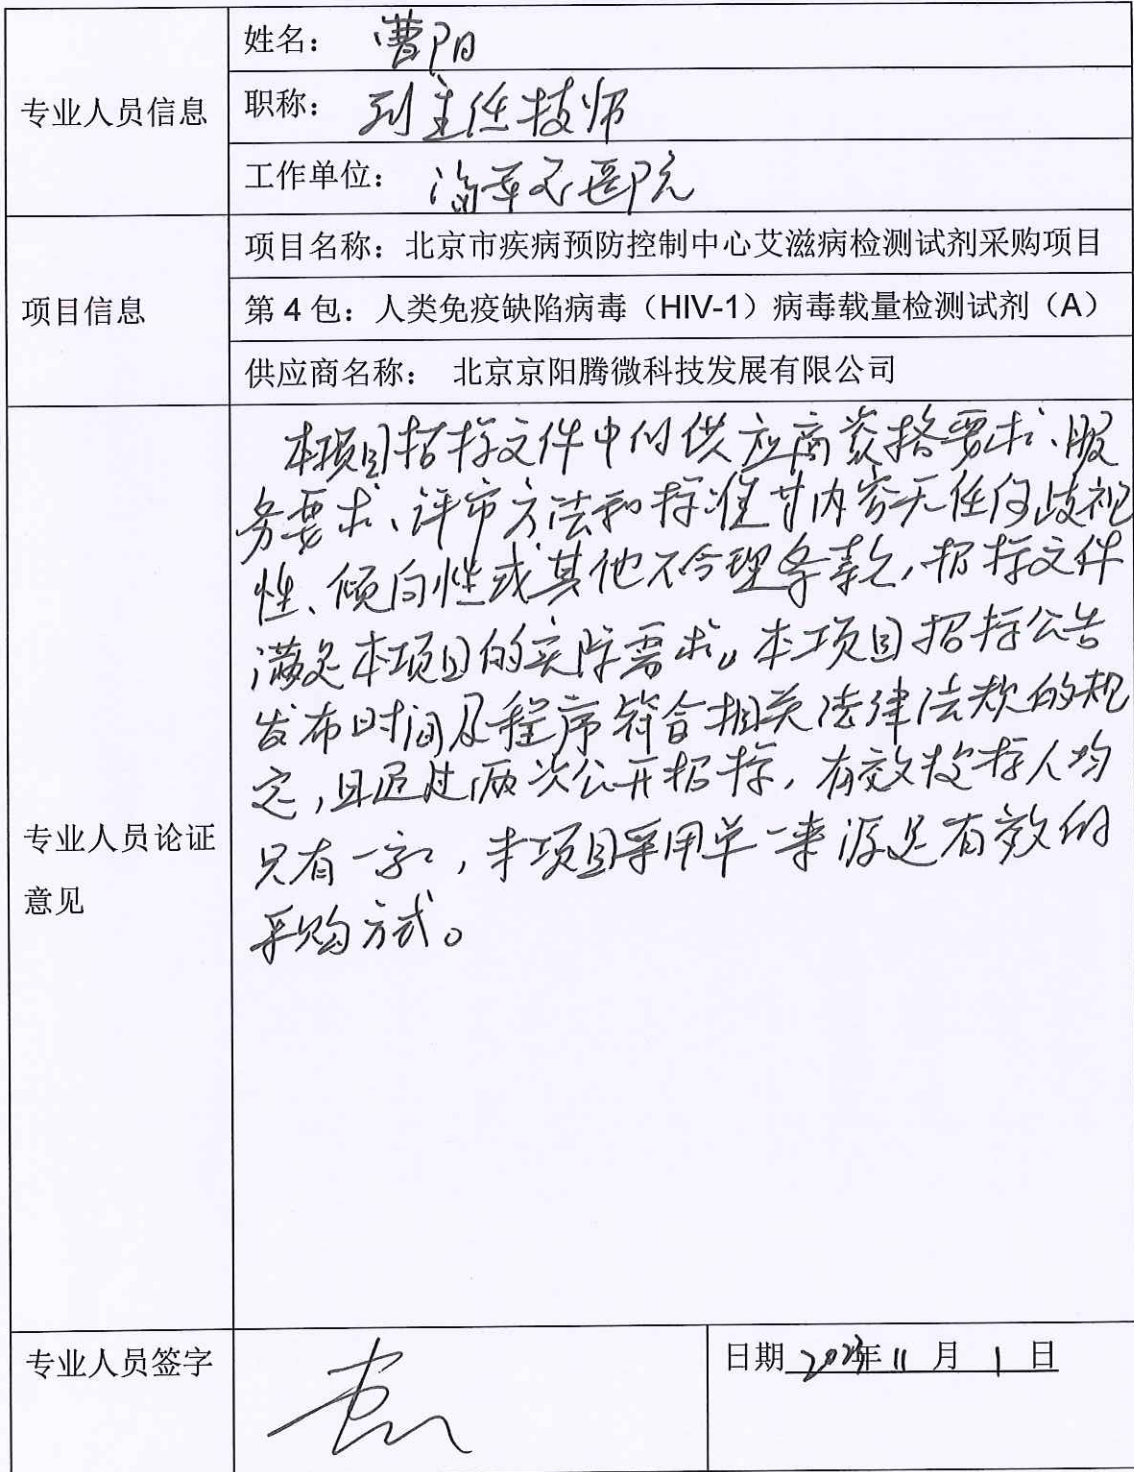 姓名： 曹阳
专业人员信息
职称： 副主任技师
工作单位： 医院
项目名称：北京市疾病预防控制中心艾滋病检测试剂采购项目
项目信息
第 4 包：人类免疫缺陷病毒（HIV-1）病毒载量检测试剂（A）
供应商名称： 北京京阳腾微科技发展有限公司
本项目招标文件中的供应商资格要求、服
务要求、评审方法和标准等内容无任何歧视
性、倾向性或其他不合理条款，招标文件
满足本项目的实际需求。本项目招标公告
发布时间及程序符合相关法律法规的规
定，且通过两次公开招标，有效投标人均
专业人员论证
只有一家，本项目采用单一来源是有效的
意见
采购方式。
专业人员签字
日期 2023年 11 月 1 日